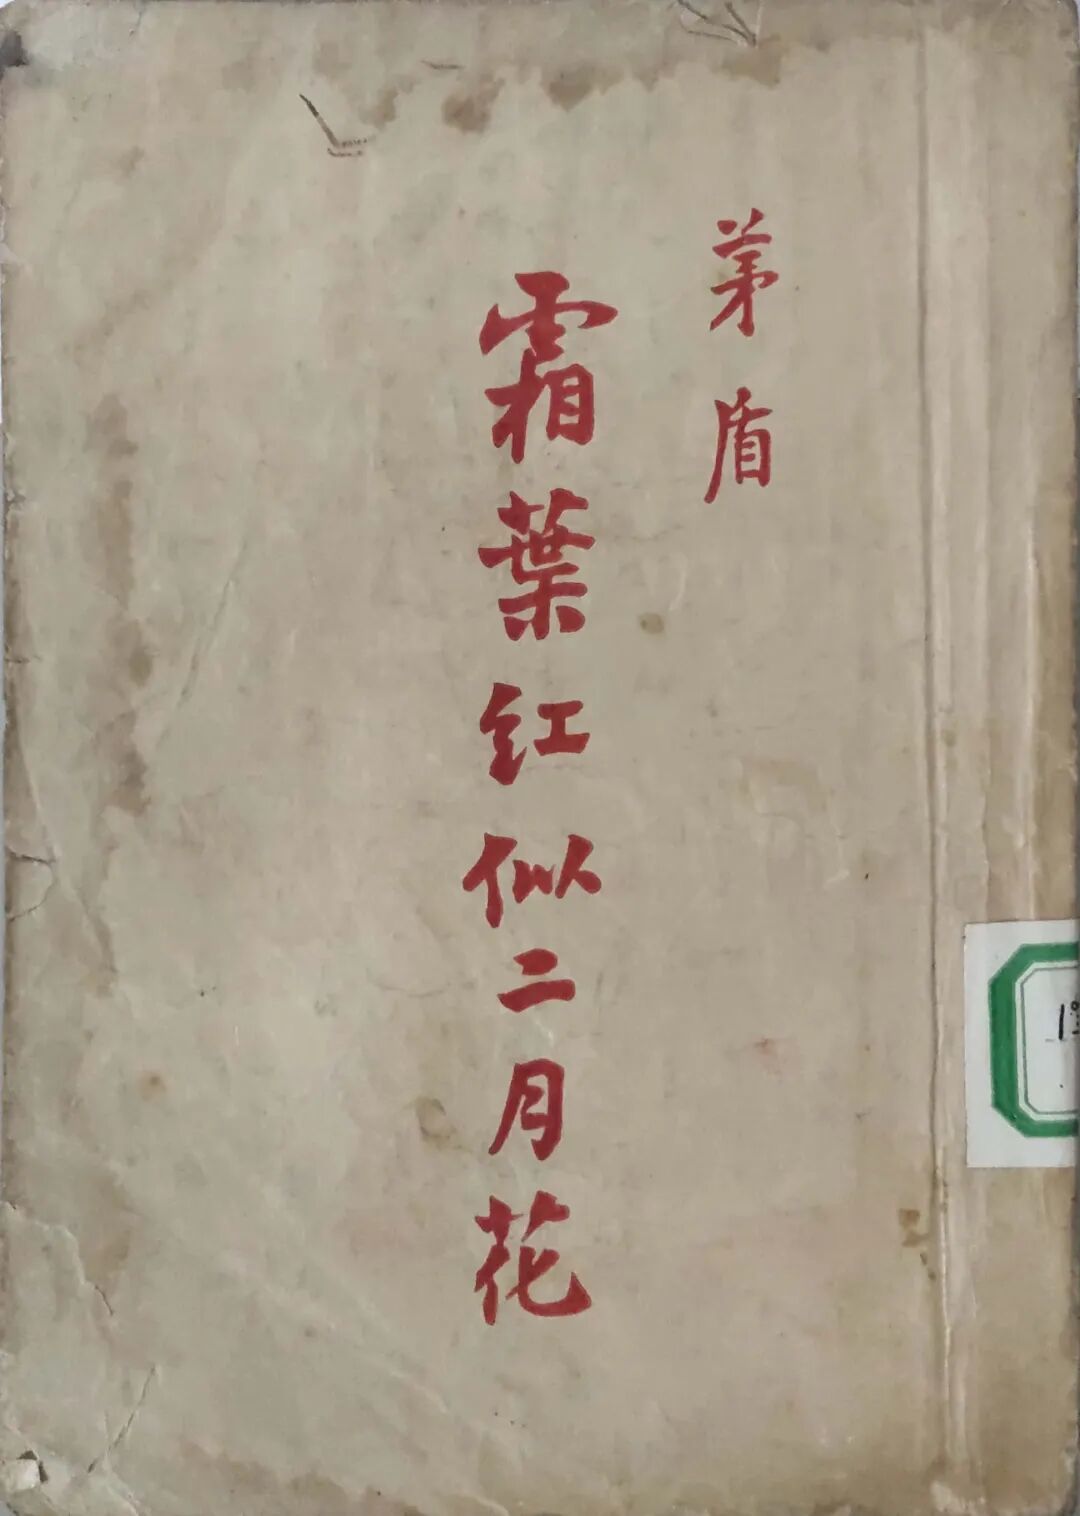 茅盾
霜葉紅似二月花